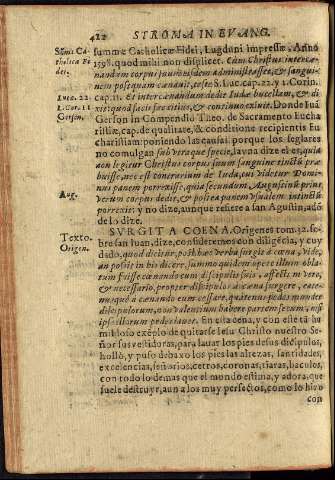 422 STROMA IN EVANG.
Sūmi Ca-
tholicæ Fi
dei.
summæ Catholicæ Fidei, Lugduni impressæ, Anno
1598. quod mihi non displicet. Cùm Christus inter cæ-
nandum corpus suum eisdem administrasset, & sangui-
nem postquam cænauit, teste S. Luc. cap. 22. y 1. Corin.
Luca. 22.
1. Cor. 11
Gerson.
cap. 11. Et inter cænandum dedit Iudæ bucellam, & di
xit: quod facis fac citiùs, & continuo exiuit. Donde Iuā
Gerson in Compendio Theo. de Sacramento Eucha
ristiæ, cap. de qualitate, & conditione recipientis Eu
charistiam: poniendo las causas, porque los seglares
no comulgan sub vtraque specie, la vna dize el es, quia
non legitur Christus corpus suum sanguine tinctū præ
buisse, nec est contrarium de Iuda, cui videtur Domi-
nus panem porrexisse, quia secundum, Augustinū prius
Aug.
verum corpus dedit, & postea panem vsualem intinctū
porrexit: y no dize, aunque refiere a san Agustin, adō
de lo dize.
Texto.
Origen.
SVRGIT A COENA. Origenes tom. 32. so-
bre san Iuan, dize, consideremos con diligēcia, y cuy
dado, quod dicitur, post hæc verba surgit à cœna, vide,
an possit in his dicere, summo quidem apere illum obla-
tum fuisse cænando cum discipulis suis, affectis in vero,
& necessario, propter discipulos à cæna surgere, easte-
nusquè à cænando eum cessare, quatenus pedes mundet
discipulorum, non valentium habere partem secum, nisi
ipse illorum pedes lauet. En esta cena, y con este tā hu
mil oloso exēplo de quitarse Iesu Christo nuestro Se-
ñor sus vestiduras, para lauar los pies de sus dicipulos,
hollò, y puso debaxo los pies las altezas, santidades,
excelencias, señorios, cetros, coronas, tiaras, baculos,
con todo lo demas que el mundo estima, y adora, que
suele destruyr, aun a los muy perfectos, como lo hizo
con